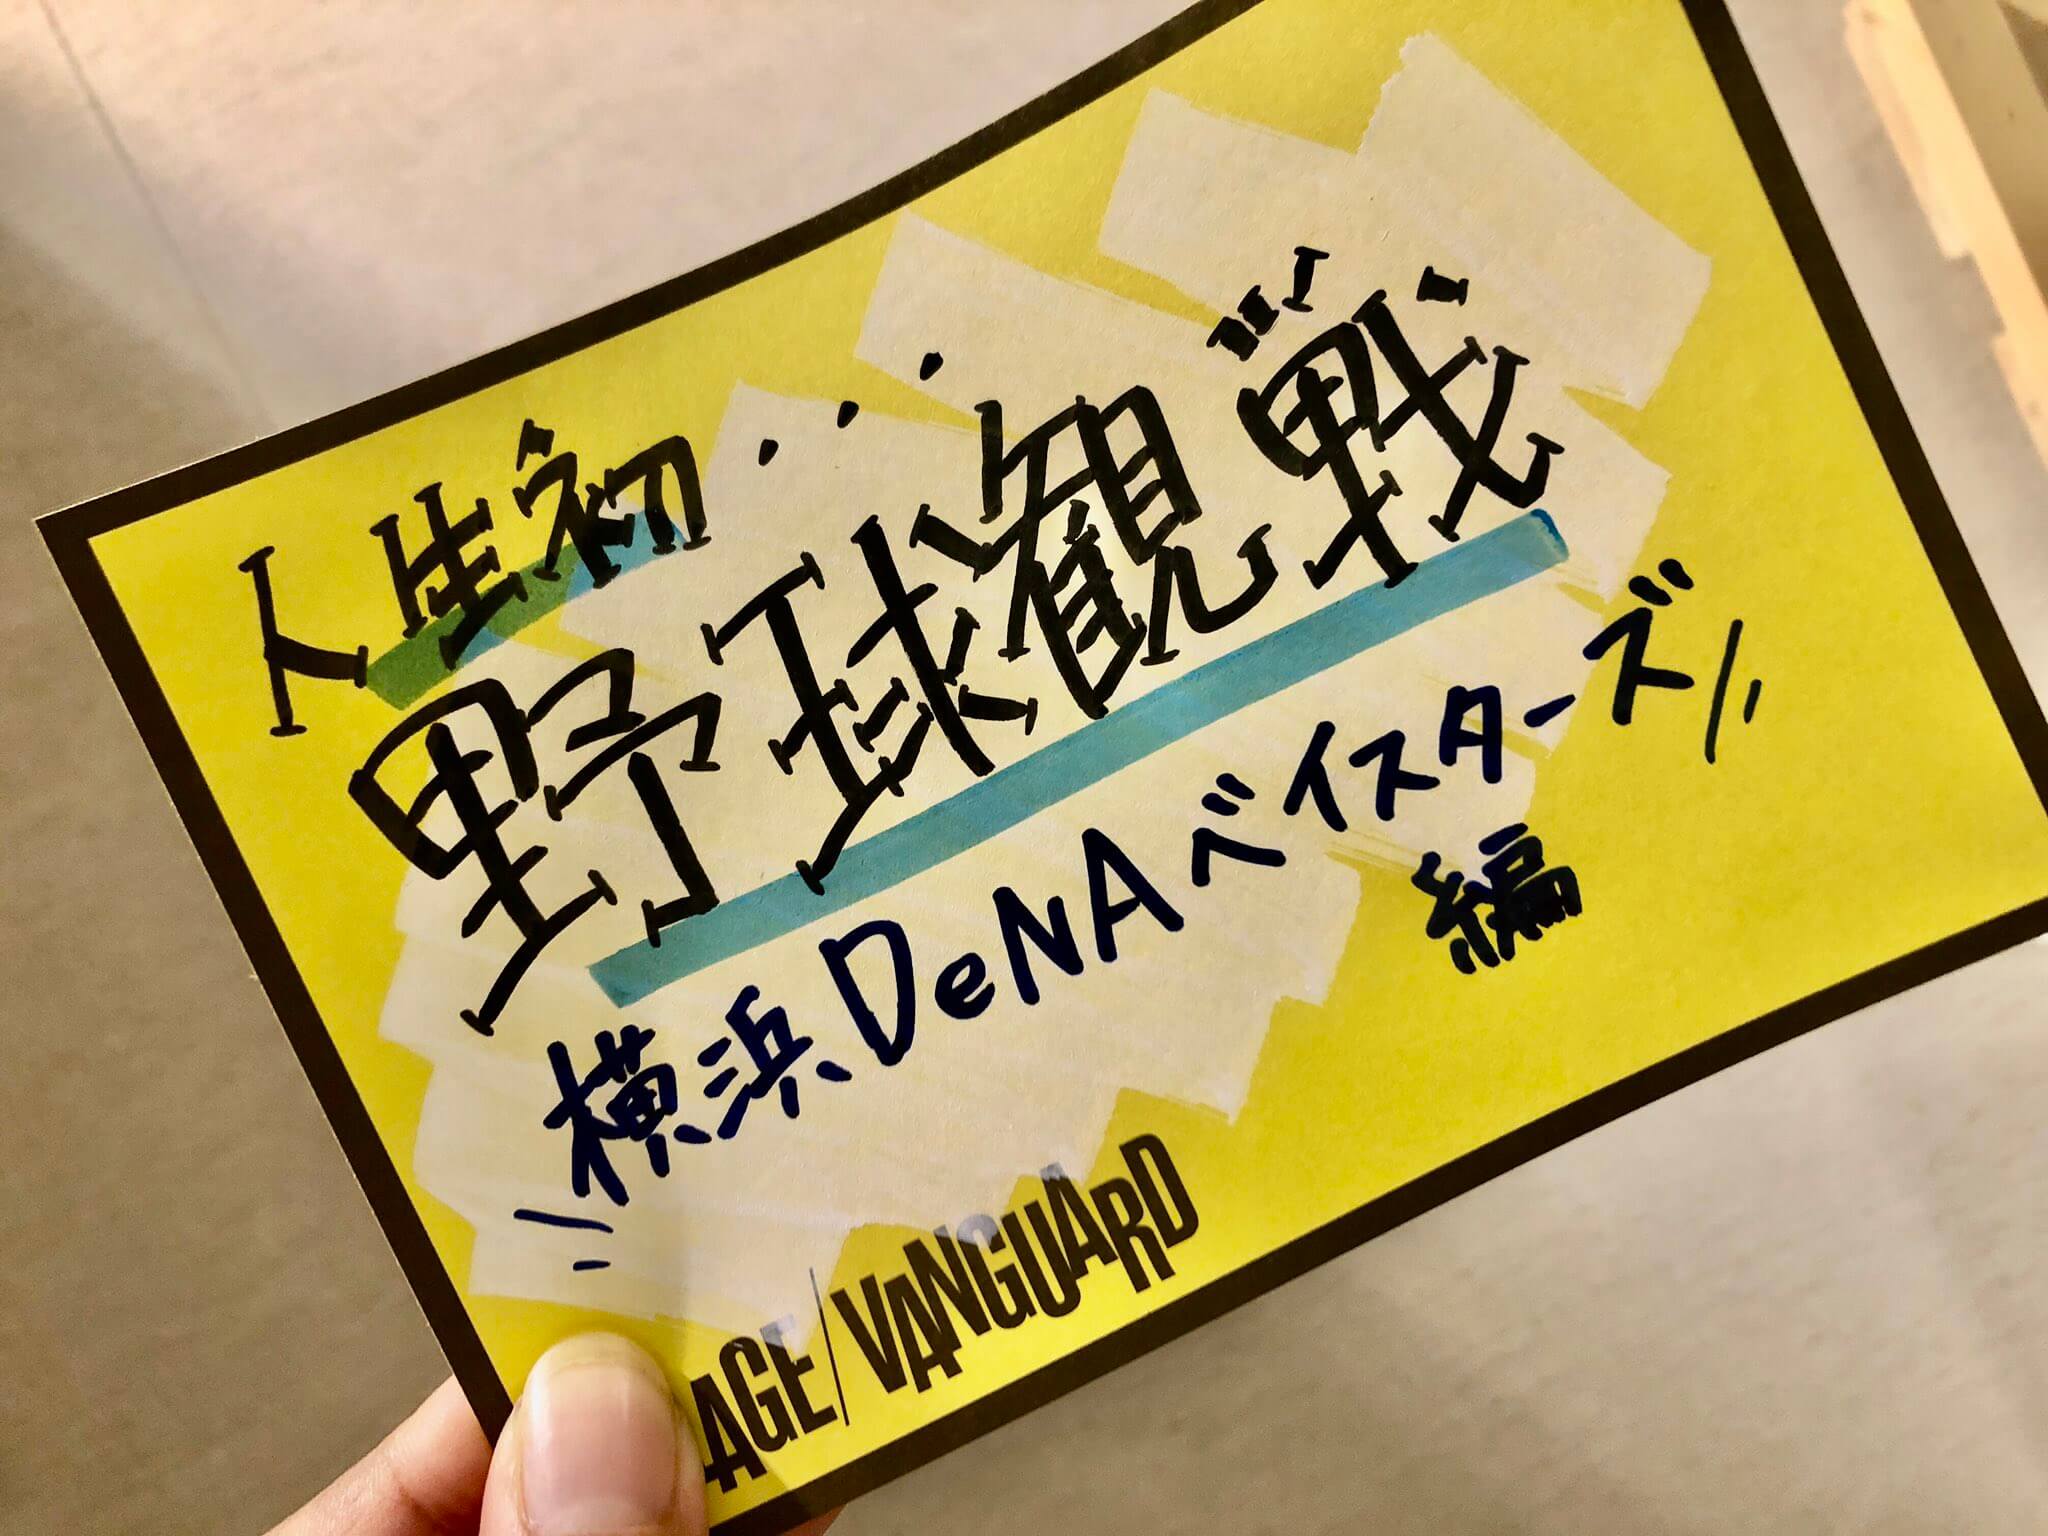 人生初・・・
野球観戦
横浜DeNAベイスターズ
編
LAGE/VANGUARD